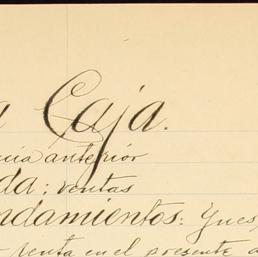 a Caja.
cia anterior
da: ventas
ndamientos: Ynes
venta en el presente a